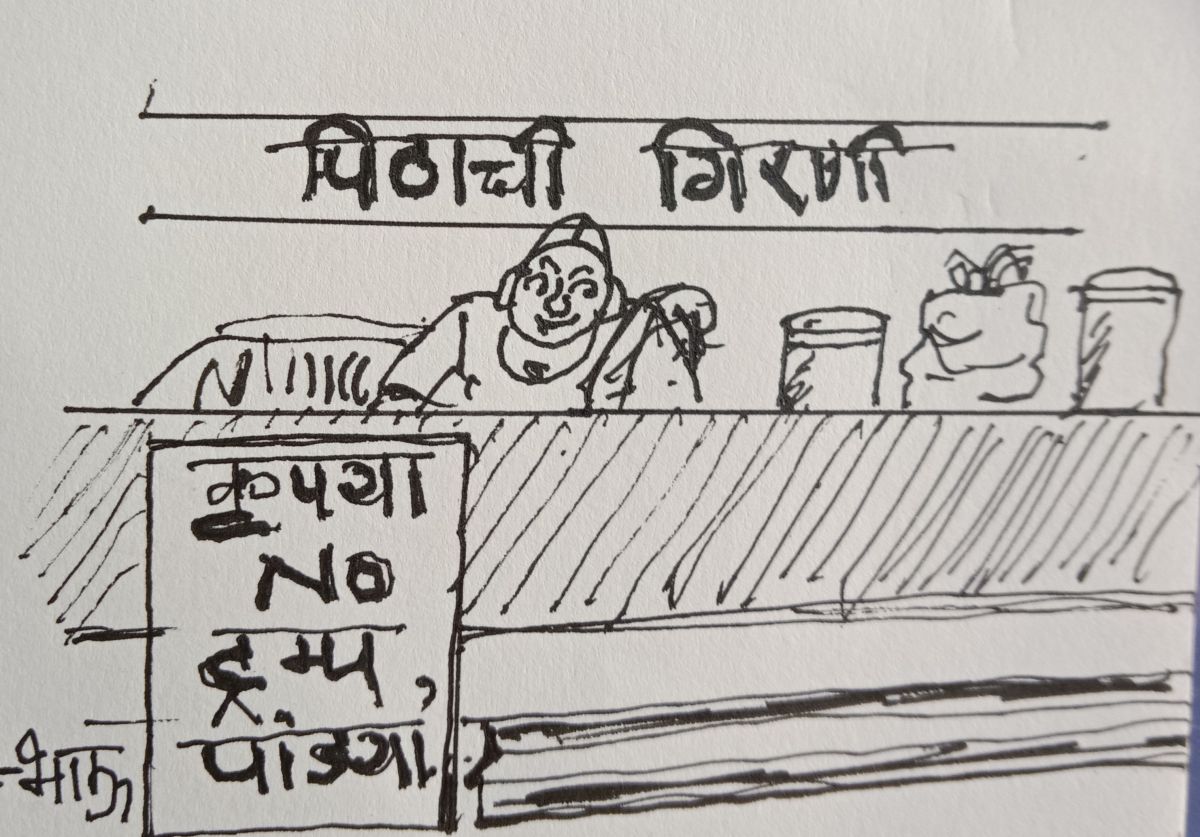 पिठाची गिरणी
कृपया
NO
ट्रम्प,
पांड्या.
-भाऊ